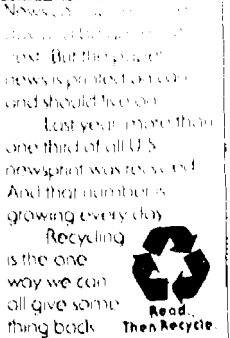 news is printed on can
and should live on.
Last year, more than
one third of all U.S.
newsprint was recycled.
And that number is
growing every day.
Recycling
is the one
way we can
all give some
thing back.
Read.
Then Recycle.